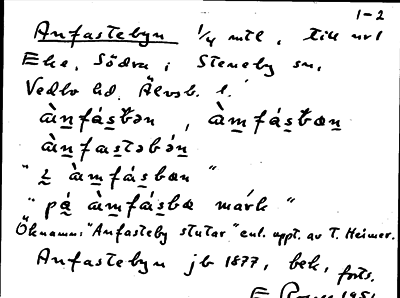 1-2
Anfastebyn 1/4 mtl, till nr 1
Ehe, Södra i Steneby sn,
Vedbo hd, Älvsb. l.
ànfástən, àmfásten
ànfastəbə́n
"i àmfásbæn"
"på àmfásbæ mark"
Öknamn: "Anfasteby stutar" enl. uppt. av T. Heimer.
Anfastebyn jb 1877, bek, forts.
E 1951